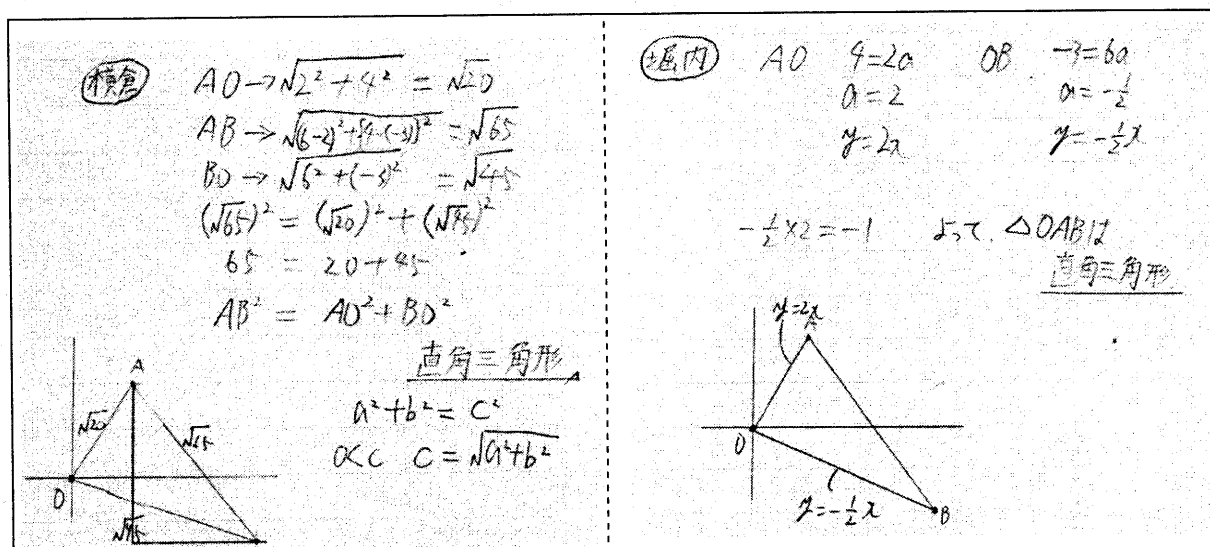 横倉
AO→√2²+4² = √20
AB→√(6-2)²+{4-(-3)}² = √65
BO→√6²+(-3)² = √45
(√65)² = (√20)²+(√45)²
65 = 20+45
AB² = AO²+BO²
直角三角形
a²+b² = c²
0<c c = √a²+b²
A
√20
√65
O
√45
堀内 AO 4=2a OB -3=6a
a=2 a=-1/2
y=2x y=-1/2x
-1/2×2=-1 よって、△OABは
直角三角形
y=2x
A
O
y=-1/2x
B